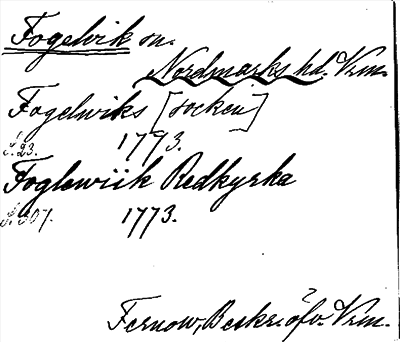 Fogelvik sn.
Nordmarks hd. Vrm.
Fogelwiks [socken]
S. 23. 1793.
Foglewiik Redkyrka
S. 307. 1773.
Fernow, Beskr. öfv. Vrm.